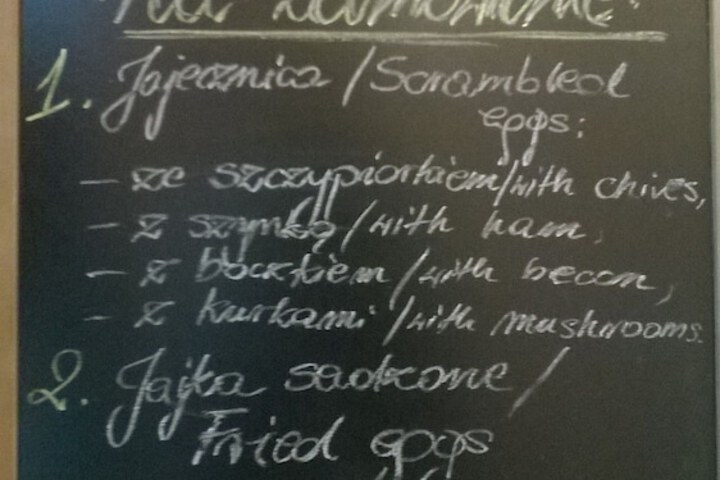 Na zamówienie:
1. Jajecznica / Scrambled
eggs:
- ze szczypiorkiem/with chives,
- z szynką / with ham,
- z boczkiem / with becon,
- z kurkami / with mushrooms.
2. Jajka sadzone /
Fried eggs